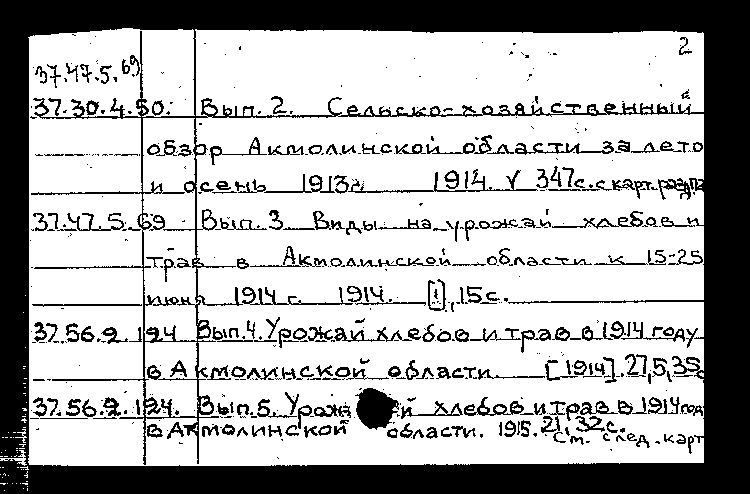 2
37.47.5.69
37.30.4.50. Вып. 2. Сельско-хозяйственный
обзор Акмолинской области за лето
и осень 1913г. 1914. V 347с. с карт.
37.47.5.69 Вып. 3 Виды на урожай хлебов и
трав в Акмолинской области к 15-25
июня 1914 г. 1914. [1], 15с.
37.56.2.124 Вып. 4. Урожай хлебов и трав в 1914 году
в Акмолинской области. [1914]. 27,5,35с
37.56.2.124. Вып. 5. Урожай хлебов и трав в 1914 год
в Акмолинской области. 1915. 21, 32 с.
См. след. карт